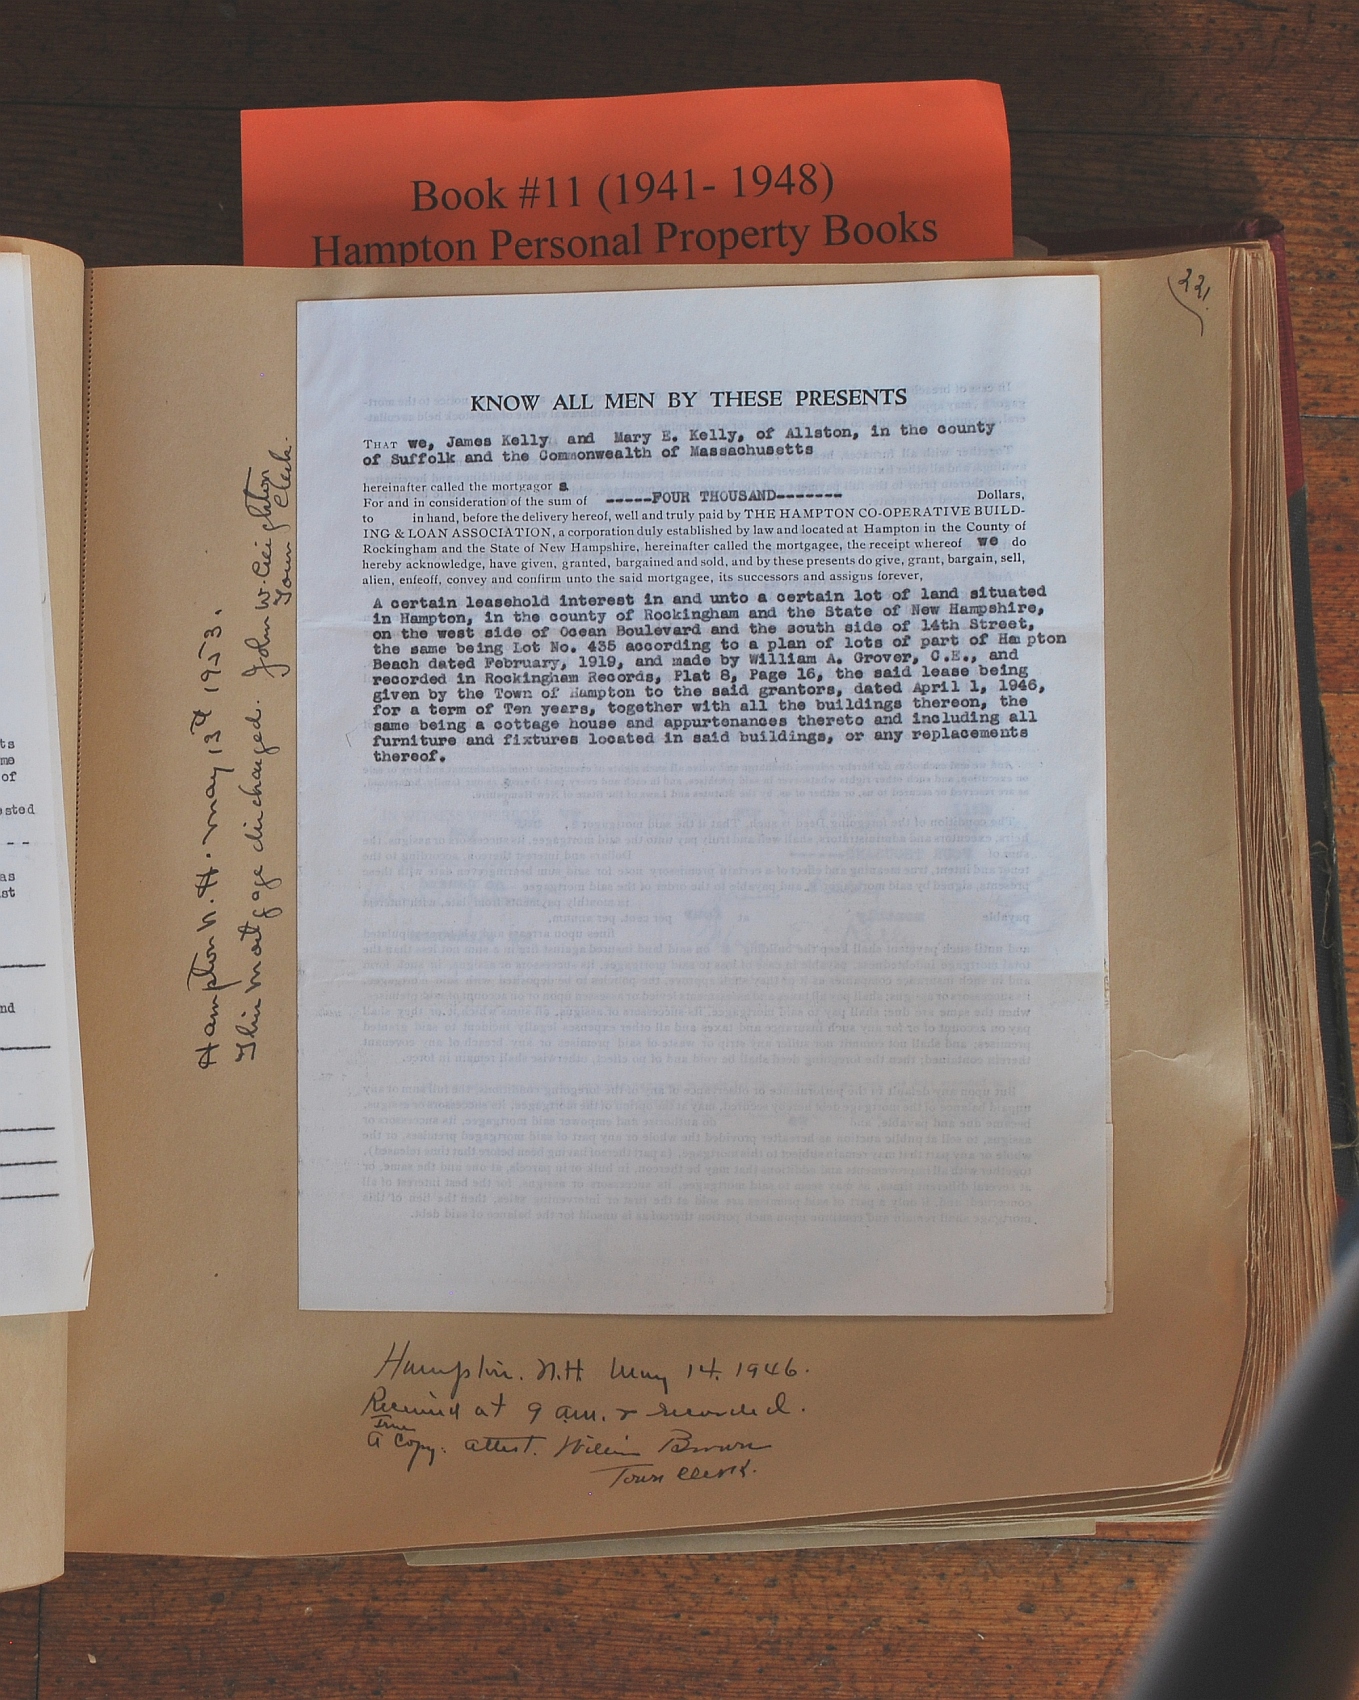 Book #11 (1941- 1948)
Hampton Personal Property Books
22.
KNOW ALL MEN BY THESE PRESENTS
THAT we, James Kelly and Mary E. Kelly, of Allston, in the county
of Suffolk and the Commonwealth of Massachusetts
hereinafter called the mortgagor s
For and in consideration of the sum of -----FOUR THOUSAND------- Dollars,
to in hand, before the delivery hereof, well and truly paid by THE HAMPTON CO-OPERATIVE BUILD-
ING & LOAN ASSOCIATION, a corporation duly established by law and located at Hampton in the County of
Rockingham and the State of New Hampshire, hereinafter called the mortgagee, the receipt whereof we do
hereby acknowledge, have given, granted, bargained and sold, and by these presents do give, grant, bargain, sell,
alien, enfeoff, convey and confirm unto the said mortgagee, its successors and assigns forever,
A certain leasehold interest in and unto a certain lot of land situated
in Hampton, in the county of Rockingham and the State of New Hampshire,
on the west side of Ocean Boulevard and the south side of 14th Street,
the same being Lot No. 435 according to a plan of lots of part of Hampton
Beach dated February, 1919, and made by William A. Grover, C.E., and
recorded in Rockingham Records, Plat 8, Page 16, the said lease being
given by the Town of Hampton to the said grantors, dated April 1, 1946,
for a term of Ten years, together with all the buildings thereon, the
same being a cottage house and appurtenances thereto and including all
furniture and fixtures located in said buildings, or any replacements
thereof.
Hampton N.H. May 13th 1953.
This mortgage discharged. John W. Creighton
Town Clerk.
Hampton. N.H May 14. 1946.
Received at 9 am. & recorded.
True
A Copy: attest. William Brown
Town Clerk.
ts
me
of
ested
- -
as
st
nd